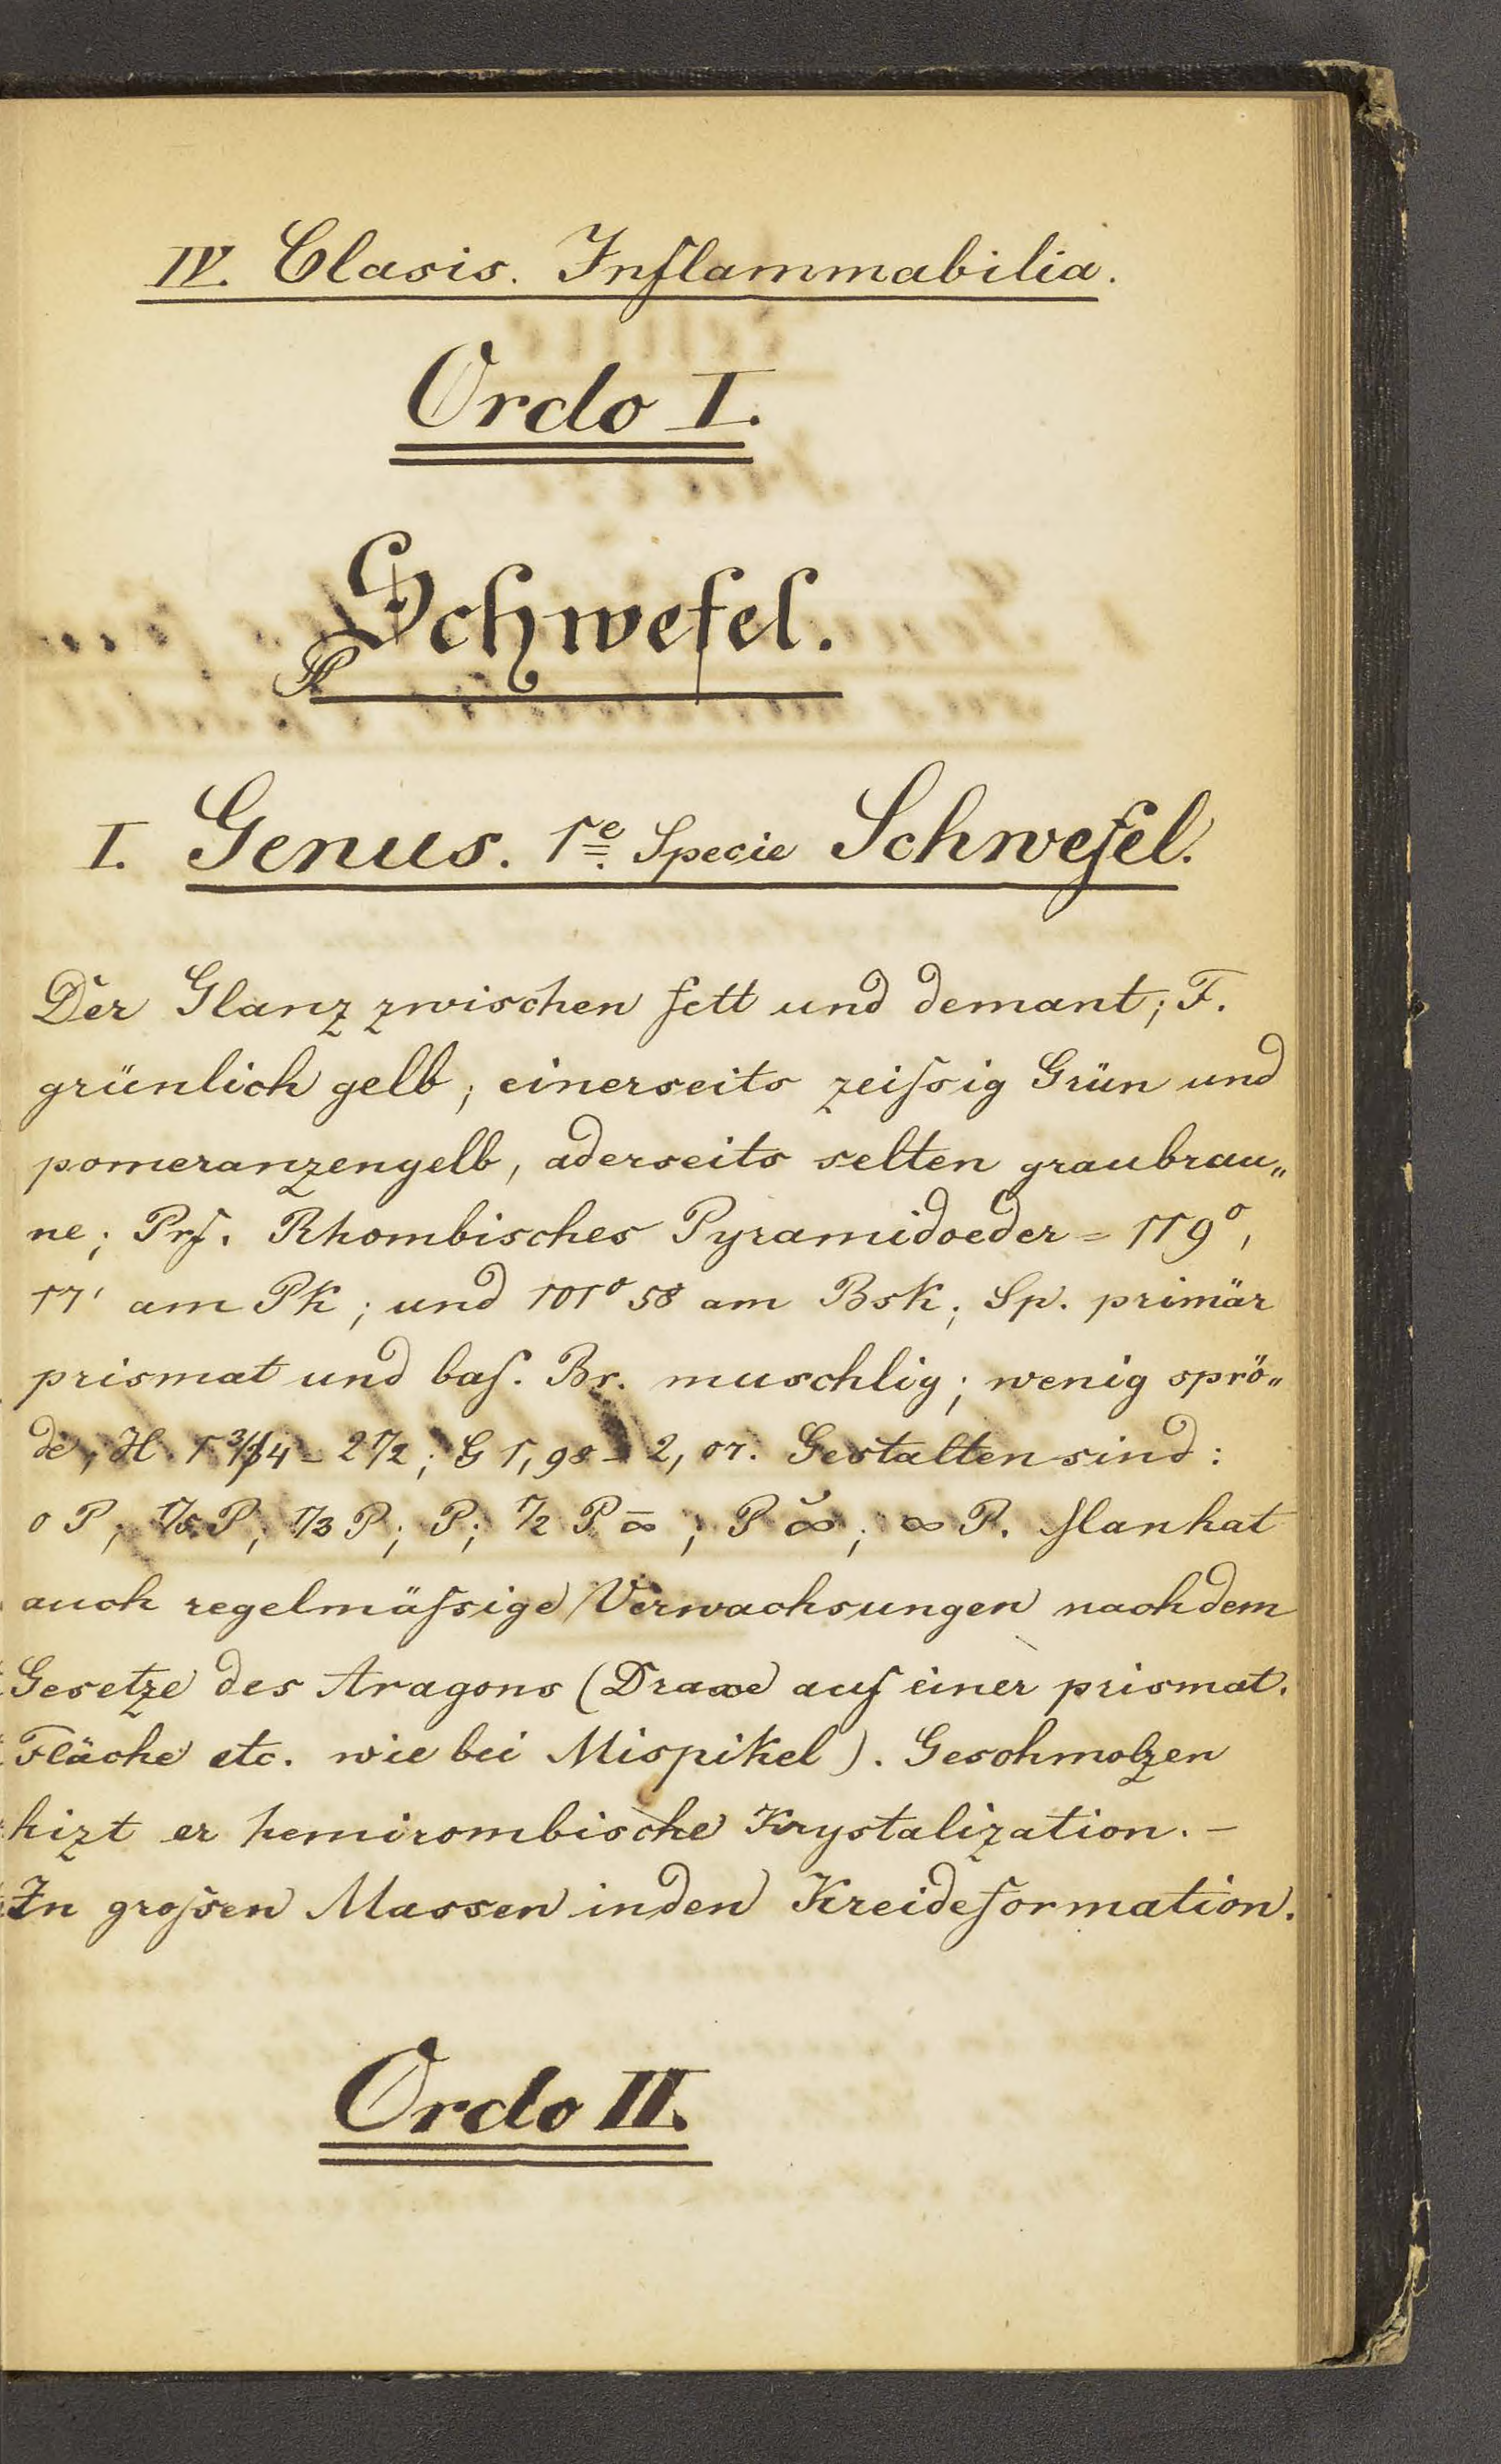 IV. Clasis. Inflammabilia.
Ordo I.
Schwefel.
I. Genus. 1e Specie Schwefel.
Der Glanz zwischen fett und demant; F.
grünlich gelb; einerseits zeißsig Grün und
pomeranzengelb, aderseits selten graubrau„
ne; Prf. Rhombisches Pyramidoeder = 119°,
17' am Pk; und 101° 58 am Bsk; Sp. primär
prismat und bas. Br. muschlig; wenig sprö„
de; H. 1 3/4 - 2 1/2; G 1,98 - 2,07. Gestalten sind:
0 P; 1/5 P; 1/3 P; P; 1/2 P ∞̄; P ∞̆; ∞ P. Man hat
auch regelmäßige Verwachsungen nach dem
Gesetze des Aragons (Draxe auf einer prismat.
Fläche etc. wie bei Mispikel). Geschmolzen
hizt er hemirombische Krystalization. -
In großen Massen in den Kreideformation.
Ordo II.